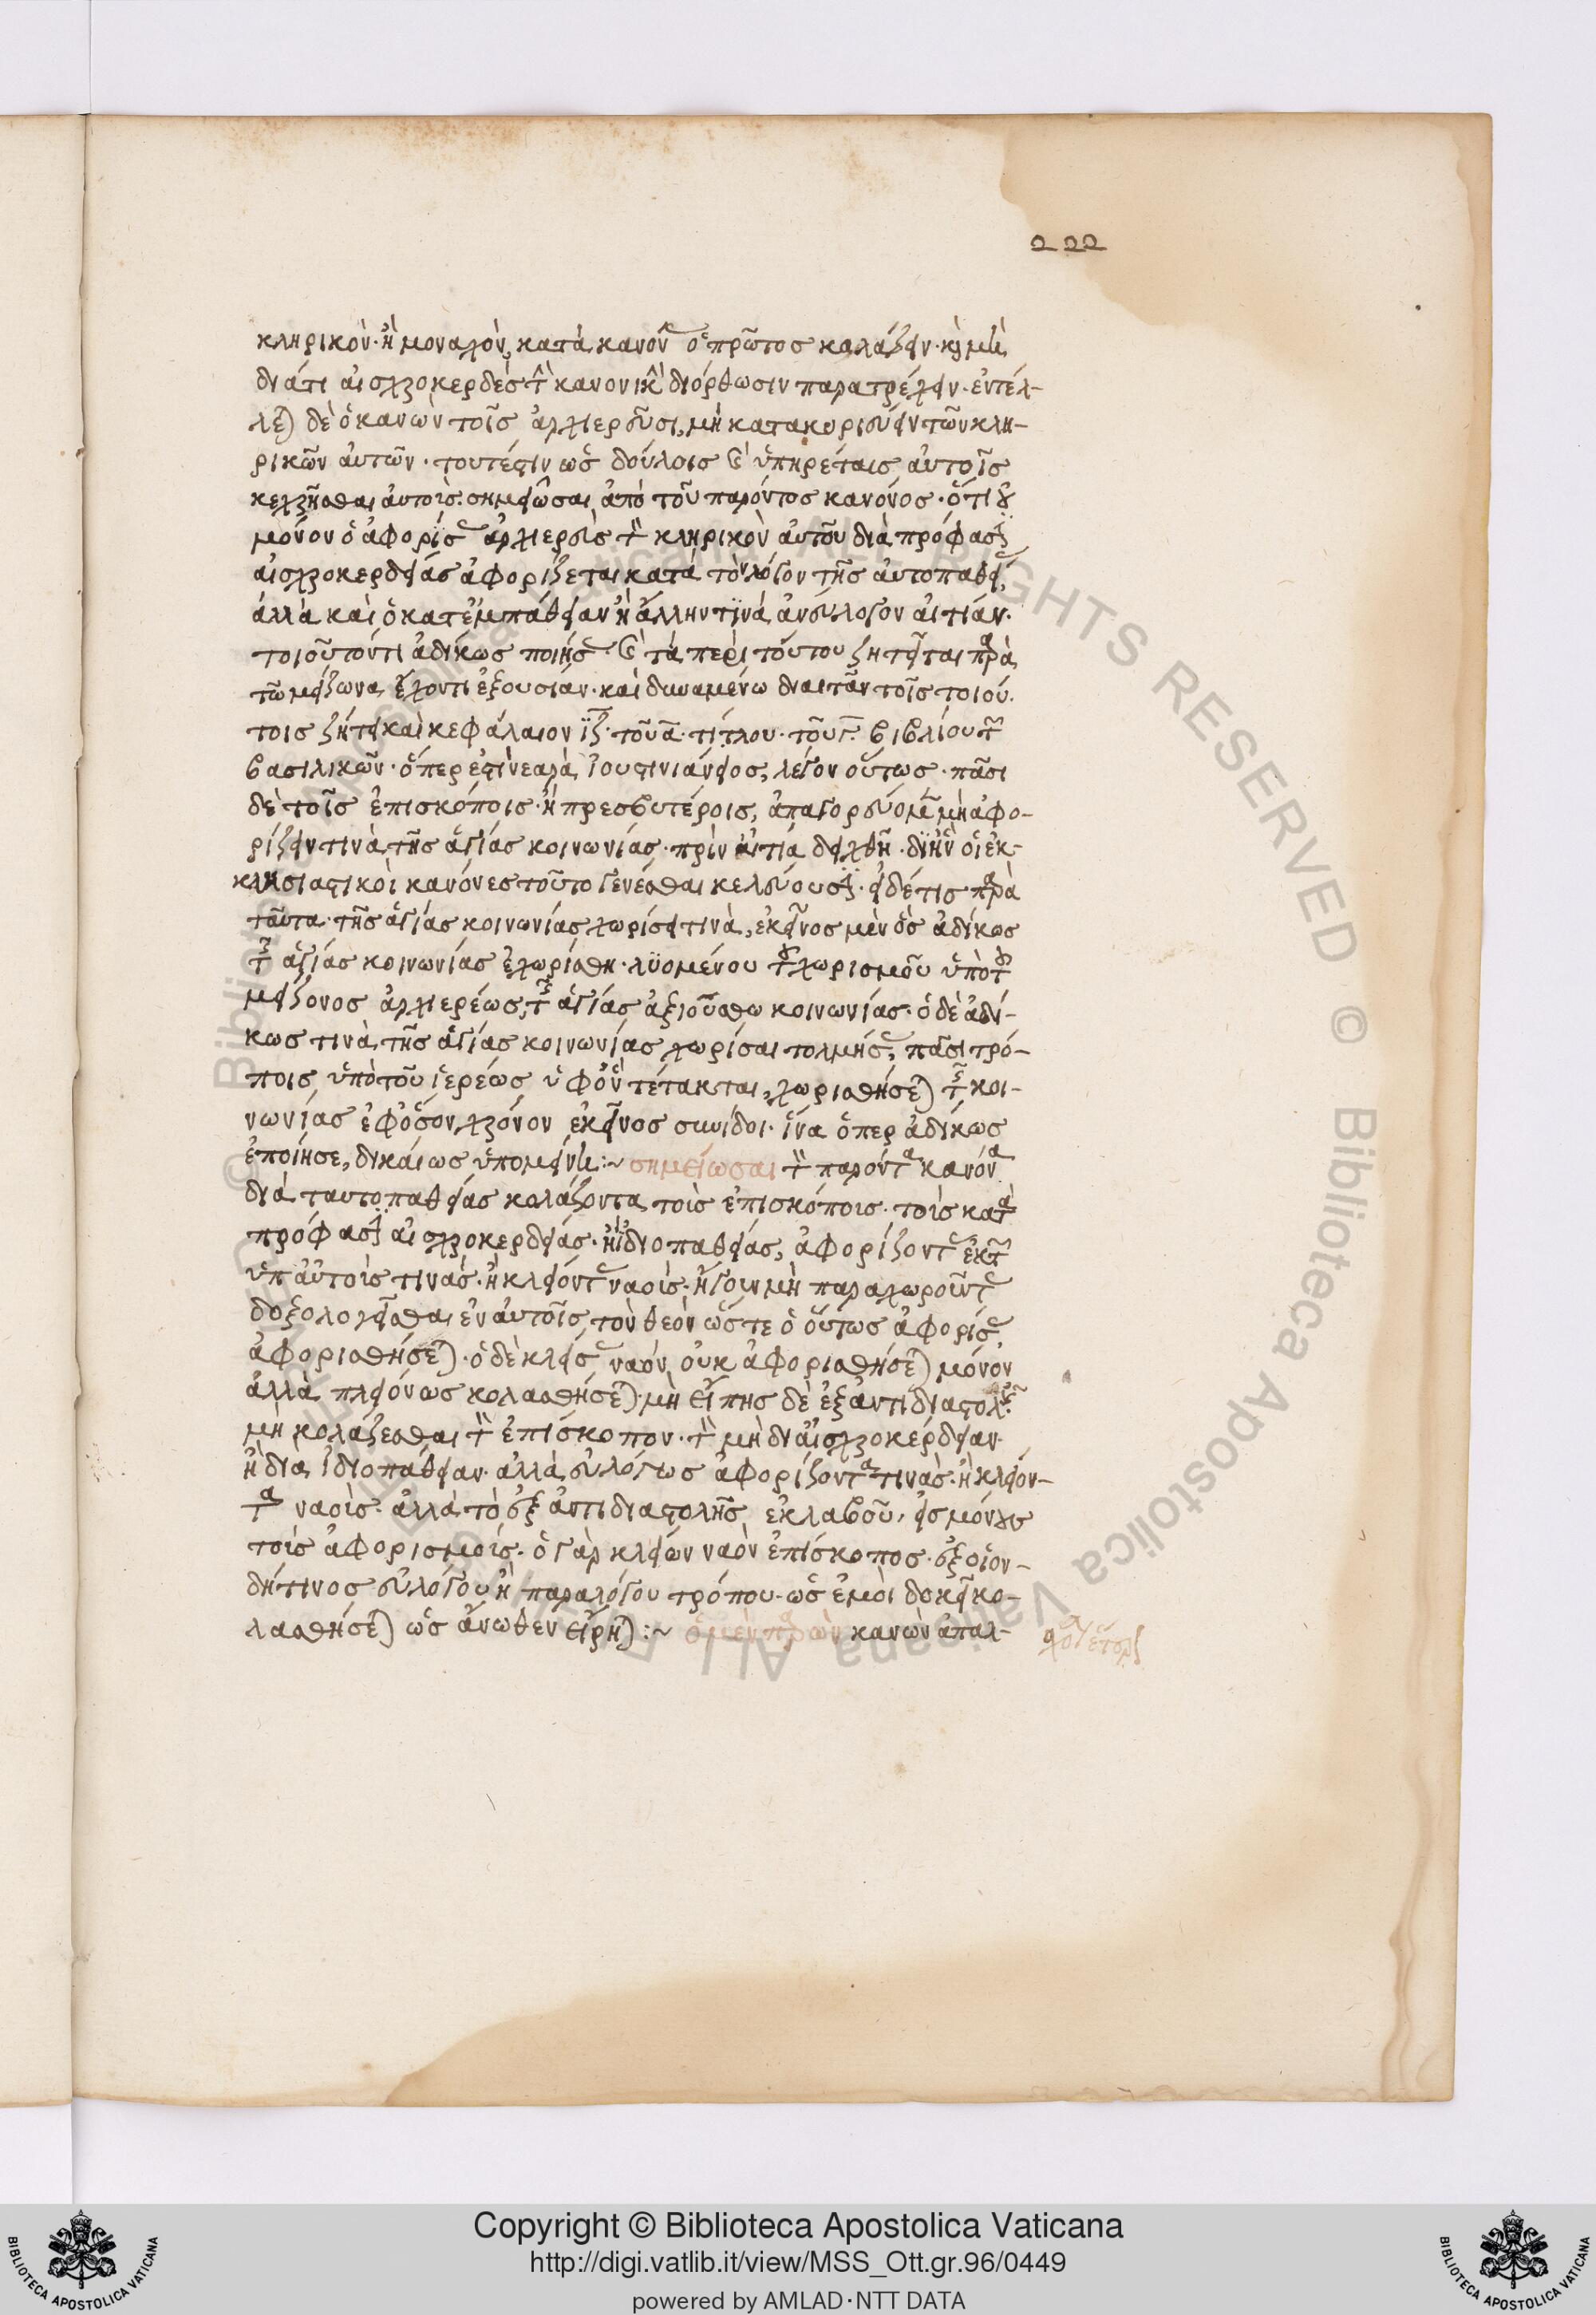 222
κληρικὸν· ἢ μοναχὸν, κατὰ κανόν ὀ πρῶτος κολάζειν· κ μὴ
διάτι αἰσχροκερδὲς τ κανονικ διόρθωσιν παρατρέχειν· ἐντέλ-
λε δὲ ὁ κανὼν τοῖς ἀρχιερεῦσι, μὴ κατακυριεύειν τῶν κλη-
ρικῶν αὐτῶν· τουτέστιν ὡς δούλοις κ ὑπηρέταις αὐτοῖς
κεχρῆσθαι αὐτοὶς. σημείωσαι ἀπὸ τοῦ παρόντος κανόνος· ὅτι ȣ
μόνον ὁ ἀφορίς ἀρχιερεὺς τ κληρικὸν αὐτοῦ διὰ πρόφασ
αἰσχροκερδείας ἀφορίζεται κατὰ τὸν λόγον τῆς αὐτοπαθεί
ἀλλὰ καὶ ὁ κατ ἐμπάθειαν ἢ ἄλλην τινὰ ἀνεύλογον αἰτίαν·
τοιοῦτόν τι ἀδίκως ποιής· κ τὰ περὶ τούτου ζητεῖται πρὰ
τῶ μείζωνα ἔχοντι ἐξουσίαν· καὶ δυναμένω διαιτᾶν τοῖς τοιού.
τοις ζήτει καὶ κεφάλαιον ιζ· τοῦ α· τίτλου· τοῦ γ. βιβλίου τ
βασιλικῶν· ὅπερ ἐστὶ νεαρὰ ἰουστινιάνειος, λέγον οὕτως· πᾶσι
δὲ τοῖς ἐπισκόποις· ἢ πρεσβυτέροις, ἀπαγορεύομ μὴ ἀφο-
ρίζειν τινὰ τῆς ἁγίας κοινωνίας· πρὶν αἰτία δειχθῆ· δι ἣν οἱ ἐκ-
κλησιαστικοὶ κανόνες τοῦτο γενέσθαι κελεύουσ· εἰ δέ τις πρὰ
ταῦτα· τῆς ἁγίας κοινωνίας χωρίσει τινὰ, ἐκεῖνος μὲν ὃς ἀδίκως
τ ἁγίας κοινωνίας ἐχωρίσθη· λυομένου τ χωρισμοῦ ὑπὸ τ
μείζονος ἀρχιερέως, τ ἁγίας ἀξιούσθω κοινωνίας· ὁ δὲ ἀδί-
κως τινὰ τῆς ἁγίας κοινωνίας χωρίσαι τολμής, πᾶσι τρό-
ποις ὑπὸ τοῦ ἱερέως ὑφ ὃν τέτακται, χωρισθήσε τ κοι-
νωνίας ἐφ ὅσον χρόνον ἐκεῖνος συνίδοι· ἵνα ὅπερ ἀδίκως
ἐποίησε, δικαίως ὑπομείνη:~ σημείωσαι τ παρόντα κανόνα
διὰ ταυτοπαθείας κολάζοντα τοὶς ἐπισκόποις· τοὶς κατὰ
πρόφασ αἰσχροκερδείας· ἢ ἰδιοπαθείας, ἀφορίζοντ ἐκ τ
ὑπ αὐτοὶς τινάς· ἢ κλείοντ ναοὶς· ἤγουν μὴ παραχωροῦντ
δοξολογεῖσθαι ἐν αὐτοῖς τὸν θεὸν ὥστε ὁ οὕτως ἀφορίς,
ἀφορισθήσε· ὁ δὲ κλείς ναόν, οὐκ ἀφορισθήσε μόνον
ἀλλὰ πλειόνως κολασθήσε· μὴ εἴπης δὲ ἐξ ἀντιδιαστολ
μὴ κολάζεσθαι τ ἐπίσκοπον· τ μὴ δι αἰσχροκέρδειαν·
ἢ δια ἰδιοπάθειαν· ἀλλὰ εὐλόγως ἀφορίζοντα τινὰς· ἢ κλείον-
τα ναοὶς· ἀλλὰ τὸ ἐξ ἀντιδιαστολῆς ἐκλαβοῦ, εἰς μόνȣς
τοὶς ἀφορισμοὶς· ὁ γὰρ κλείων ναὸν ἐπίσκοπος· ἐξ οἱον-
δήτινος εὐλόγου ἢ παραλόγου τρόπου· ὡς ἐμοὶ δοκεῖ κο-
λασθήσε ὡς ἄνωθεν εἴρη:~ ὁ μὲν πρων κανὼν ἀπαι-
Copyright © Biblioteca Apostolica Vaticana
http://digi.vatlib.it/view/MSS_Ott.gr.96/0449
powered by AMLAD·NTT DATA